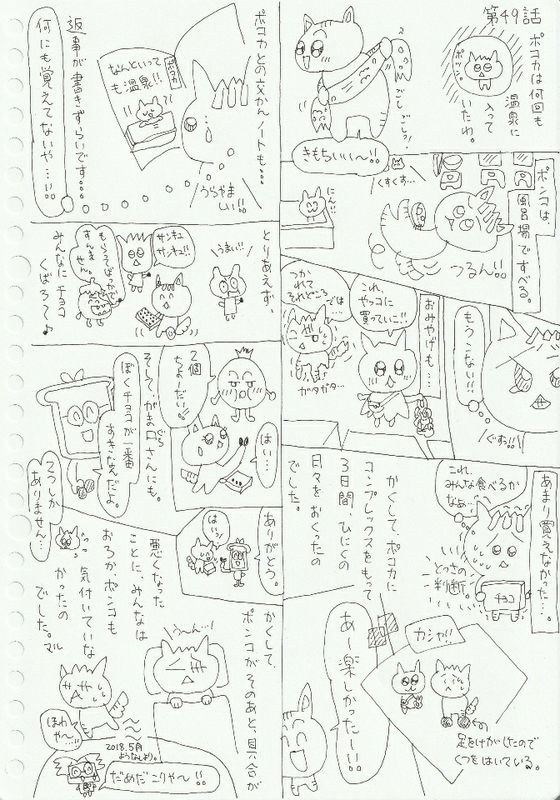 第49話
ポコカは何回も
温泉に
入って
いたわ。
ポッ
ゴシ ゴシッ!
きもちいい〜!!
ポンコは、
風呂場ですべる。
くすくす…
にん!!
つるん!!
もうこない!!
ぐすっ!!
おみやげも…
これ、
ヤッコに
買っていこ!!
つか
れて
それどころ
では…
ガタガタ…
あまり買えなかた…。
これ、
みんな食べるか
なぁ…
とっさの
判断。
チョコ
かくして、ポコカに
コンプレックスをもって
3日間、ひにくの
日々をおくったの
でした。
カシャ!!
足をけがしたので
くつをはいている。
あ〜楽しかった〜!!
ポコカとの交かんノートも…
ポコカ
なんといって
も温泉!!
うらやま
しい!!
返事が書きずらいです…
何にも覚えてないや…!!
とりあえず、
うまい!!
サンキュ
サンキュ!!
もらってばかりで
すんま
せん。
みんなにチョコ
くばろ〜♪
2個
ちょーだい!!
はい…
そして、がま口さんにも。
ぼくチョコが一番
すきなんだよ。
2つしか
ありません…
ありがとう。
はいっ
かくして、
ポンコがそのあと、具合が
悪くなった
ことに、みんなは
おろか、ポンコも
気付いていな
かったの
でした。マル
う〜ん…!
ほわ
や〜…!!
2018.5月
だめだこりゃ〜!!